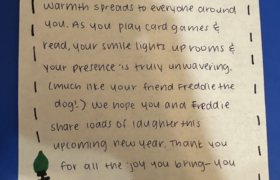 warmth spreads to everyone around
you. As you play card games &
read, your smile lights up rooms &
your presence is truly unwavering.
(much like your friend Freddie the
dog!) We hope you and Freddie
share loads of laughter this
upcoming new year. Thank you
for all the joy you bring- you